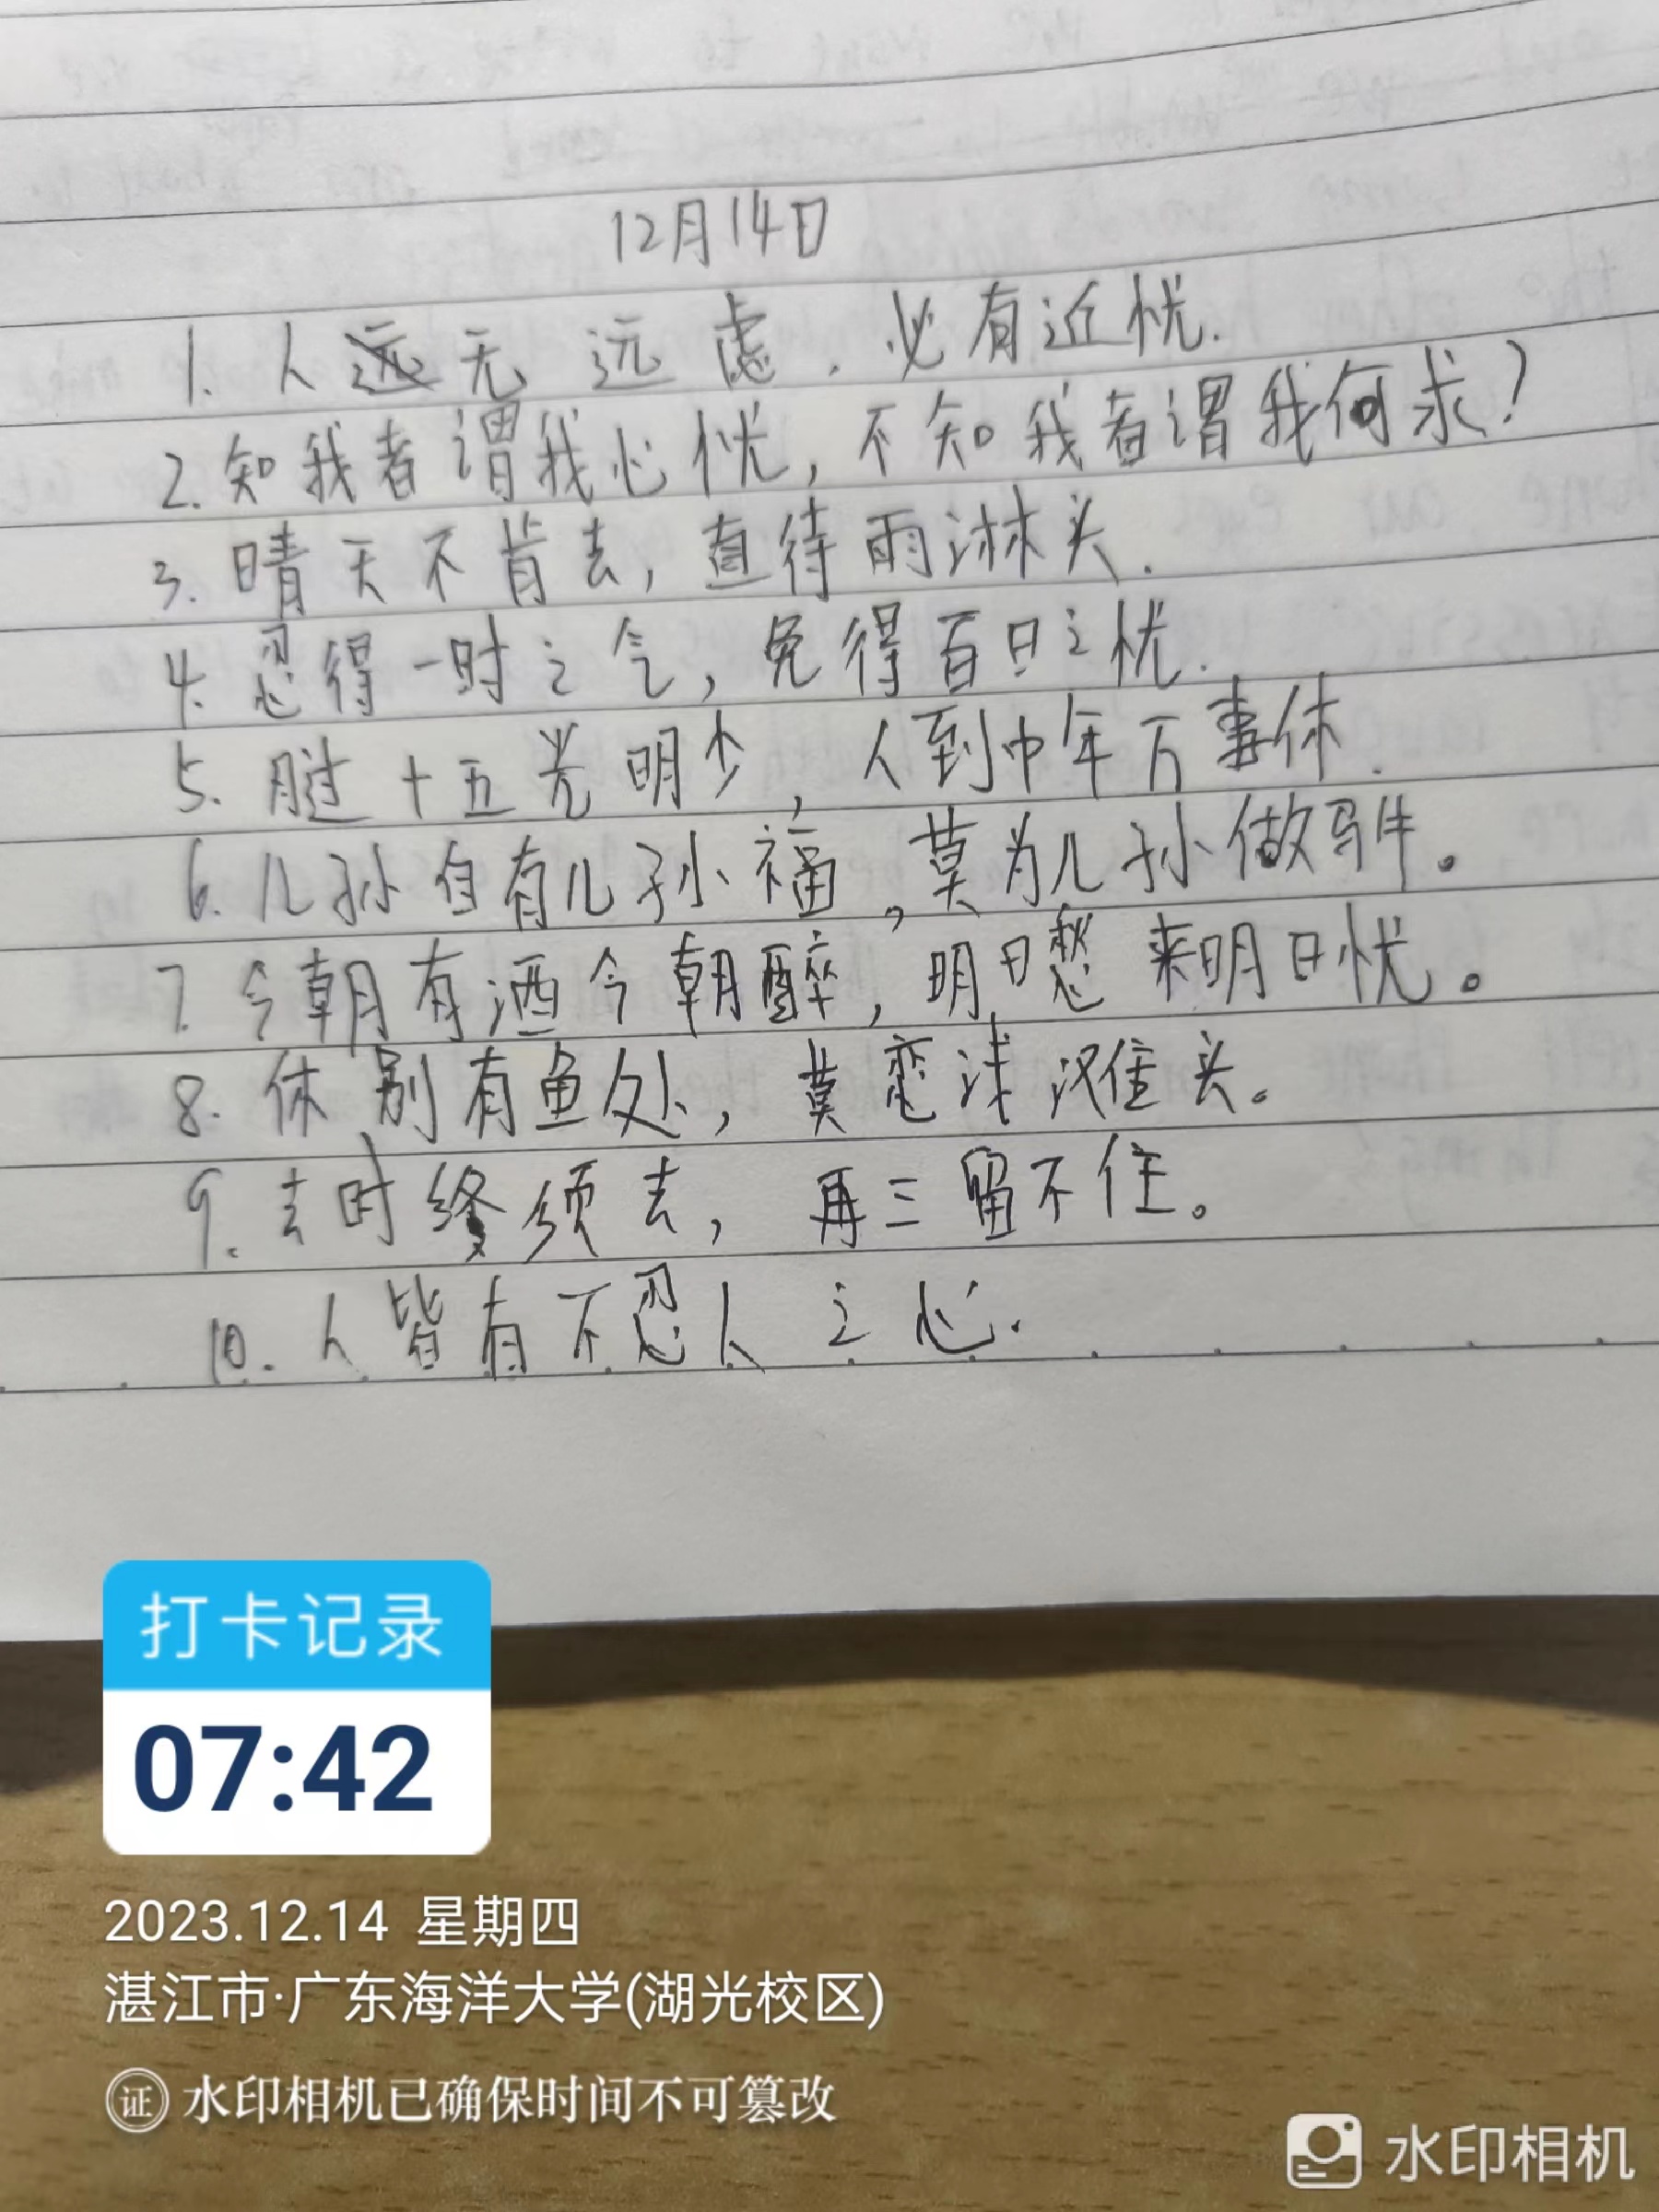 12月14日
1. 人无远虑，必有近忧.
2. 知我者谓我心忧，不知我者谓我何求？
3. 晴天不肯去，直待雨淋头.
4. 忍得一时之气，免得百日之忧.
5. 月过十五光明少，人到中年万事休.
6. 儿孙自有儿孙福，莫为儿孙做马牛。
7. 今朝有酒今朝醉，明日愁来明日忧。
8. 休别有鱼处，莫恋浅滩头。
9. 去时终须去，再三留不住。
10. 人皆有不忍人之心.
打卡记录
07:42
2023.12.14 星期四
湛江市·广东海洋大学(湖光校区)
证 水印相机已确保时间不可篡改
水印相机